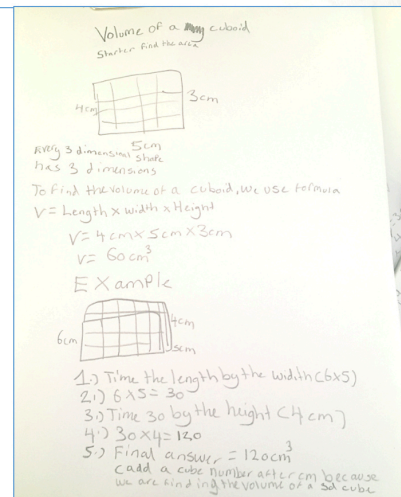 Volume of a cuboid
Starter find the area
4cm
3cm
5cm
Every 3 dimensional shape
has 3 dimensions
To find the volume of a cuboid, we use formula
V = Length x width x Height
V = 4cm x 5cm x 3cm
V = 60cm³
Example
4cm
6cm
5cm
1.) Time the length by the width (6x5)
2.) 6x5 = 30
3.) Time 30 by the height (4cm)
4.) 30x4 = 120
5.) Final answer = 120cm³
(add a cube number after cm because
we are finding the volume of a cube